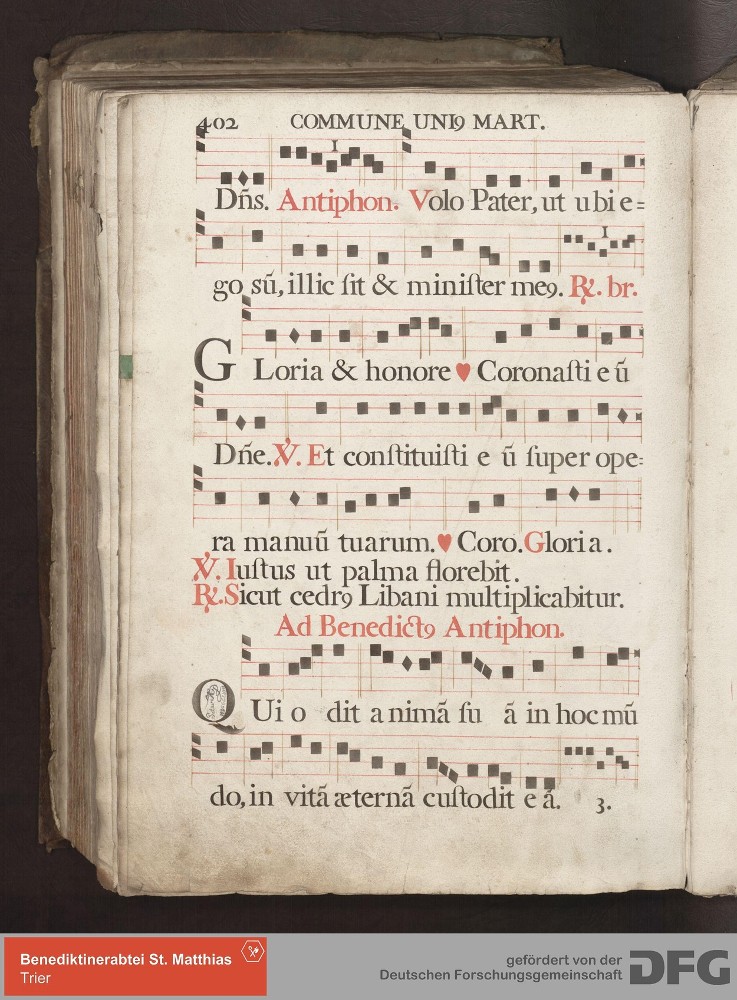 402 COMMUNE UNIꝰ MART.
I
Dn̄s. Antiphon. Volo Pater, ut ubi e=
I
go sū, illic ſit & miniſter meꝰ. ℟. br.
GLoria & honore ♥ Coronaſti eū
Dn̄e. ℣. Et conſtituiſti eū ſuper ope=
ra manuū tuarum. ♥ Coro. Gloria.
℣. Iuſtus ut palma florebit.
℟. Sicut cedrꝰ Libani multiplicabitur.
Ad Benedictꝰ Antiphon.
QUi odit animā ſuā in hoc mū
do, in vitā æternā cuſtodit eā. 3.
Benediktinerabtei St. Matthias
Trier
gefördert von der
Deutschen Forschungsgemeinschaft
DFG